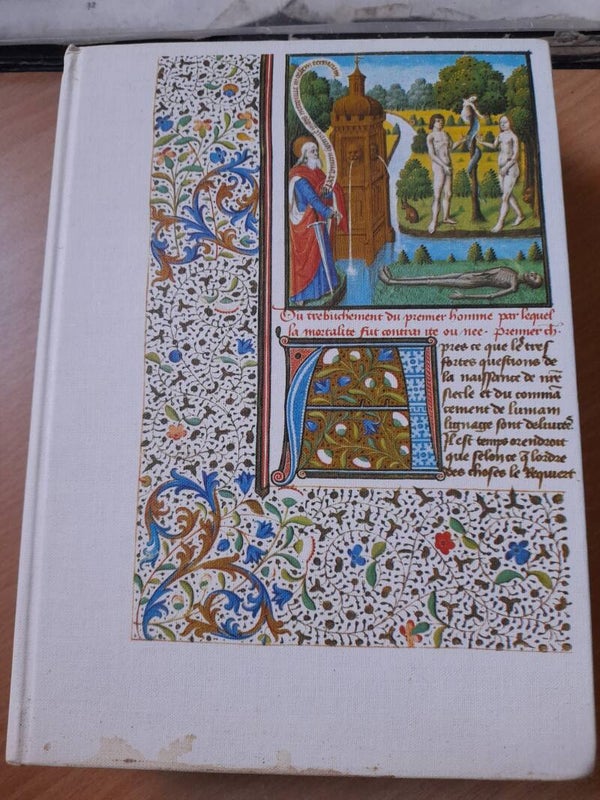 Du trebuchement du premier homme par lequel
la mortalite fut contraite ou nee. Premier ch
pres ce que les tres
fortes questions de
la naissance de nre
siecle et du comma
cement de lumain
lignage sont delivrees
Il est temps orendroit
que selonce q lordre
des choses le Requiert